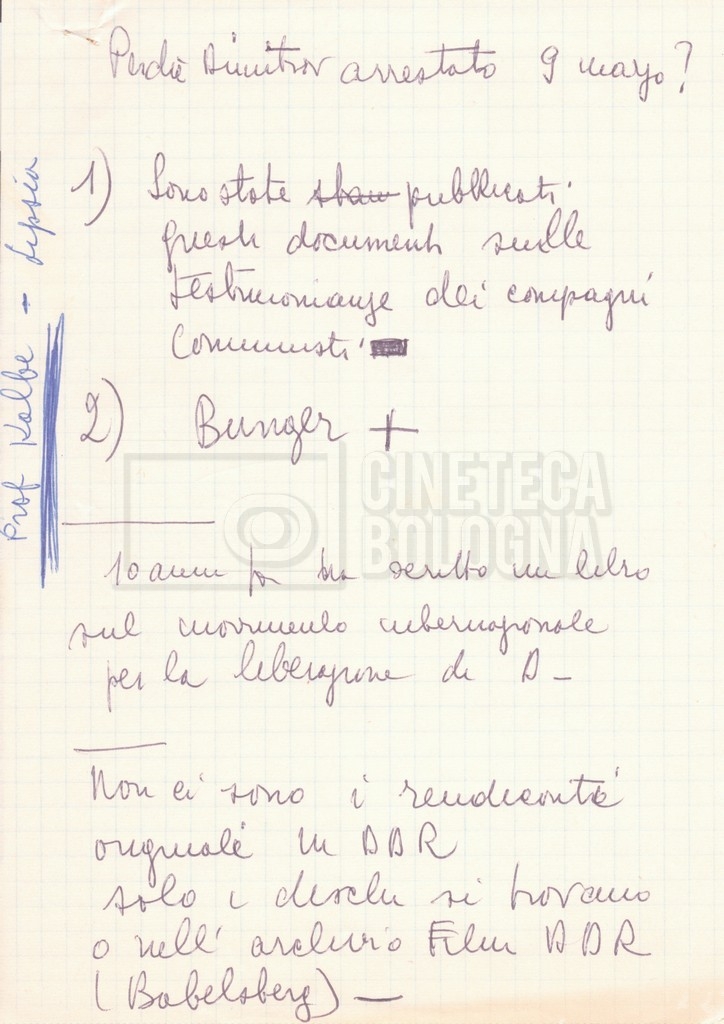 Perché Dimitrov arrestato 9 marzo?
Prof Kalbe - Lipsia
1) Sono state pubblicati
questi documenti sulle
testimonianze dei compagni
Comunisti
2) Bunger +
CINETECA
BOLOGNA
10 anni fa ha scritto un libro
sul movimento internazionale
per la liberazione di D -
Non ci sono i rendiconti
originali in DDR
solo i dischi si trovano
o nell' archivio Film DDR
(Babelsberg) -